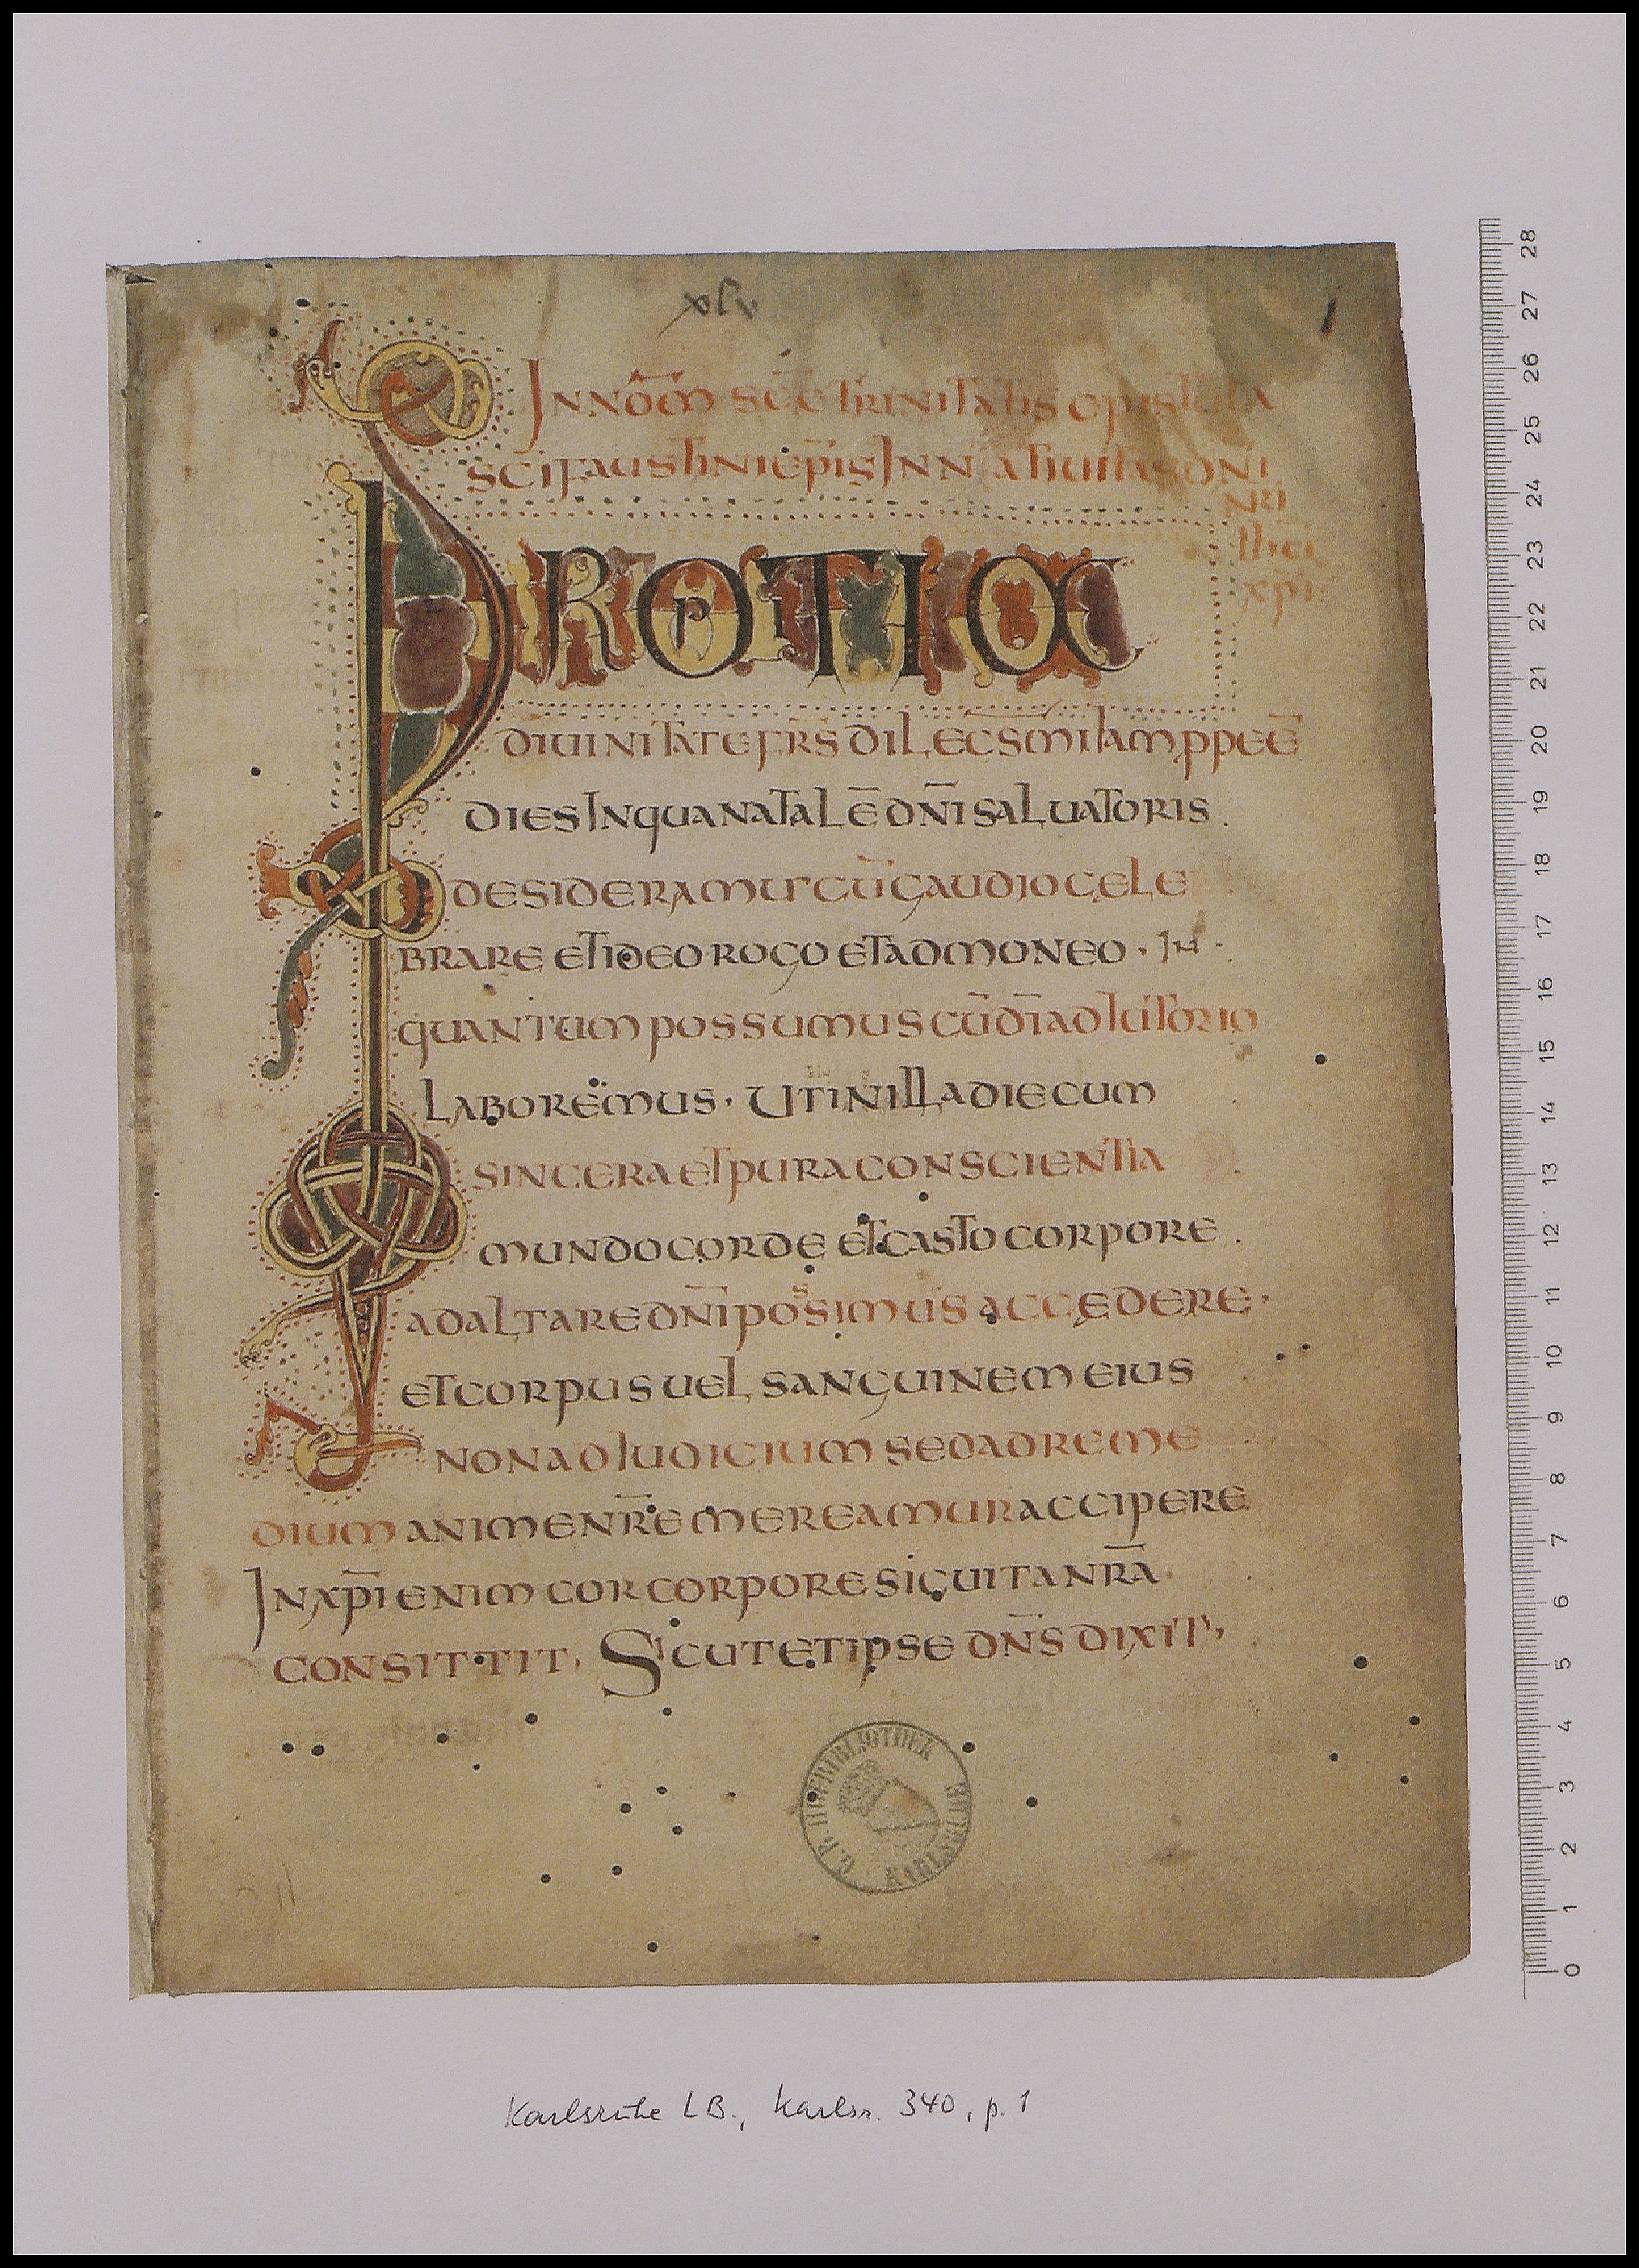 xlv
1
INNOM̄ SC̄E TRINITATIS EPISTULA
SC̄I FAUSTINI EP̄IS IN NATIUITAS DN̄I
NR̄I
IHŪ
XP̄I
PROPITIA
DIUINITATE FR̄S DILEC̄SMI IAM PPE Ē
DIES IN QUA NATALĒ DN̄I SALUATORIS
DESIDERAMUS CŪ GAUDIO CELE
BRARE ET IDEO ROGO ET ADMONEO · IN
QUANTUM POSSUMUS CŪ DĪ ADIUTORIO
LABOREMUS · UT IN ILLA DIE CUM
SINCERA ET PURA CONSCIENTIA
MUNDO CORDE ET CASTO CORPORE
AD ALTARE DN̄I POSSIMUS ACCEDERE ·
ET CORPUS UEL SANGUINEM EIUS
NON AD IUDICIUM SED AD REME
DIUM ANIME NR̄E MEREAMUR ACCIPERE
IN XP̄I ENIM COR CORPORE SIGUITA NR̄A
CONSITTIT, SICUT ET IPSE DN̄S DIXIT,
G. B. HOFBIBLIOTHEK KARLSRUHE
28
27
26
25
24
23
22
21
20
19
18
17
16
15
14
13
12
11
10
9
8
7
6
5
4
3
2
1
0
Karlsruhe LB., Karlsr. 340, p. 1